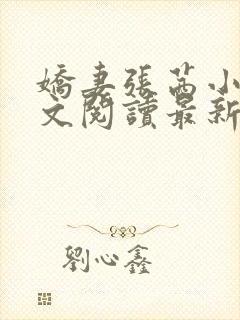 嬌妻張茜小
文閱讀最新
劉心鑫